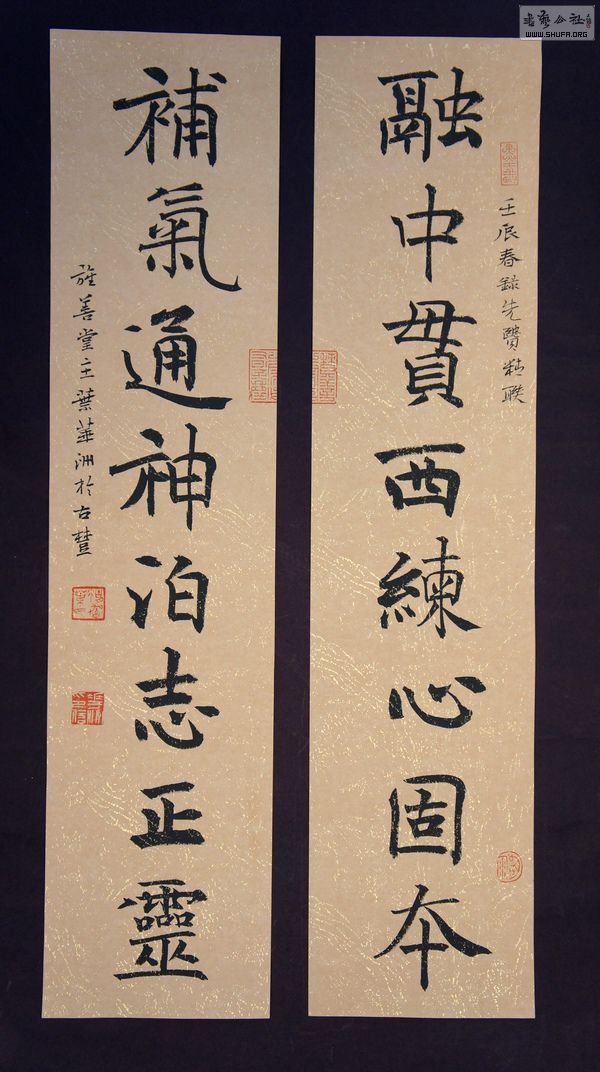 融中貫西練心固本
壬辰春錄先賢精聯
補氣通神泊志正靈
雅善堂主葉華洲於古楚
書藝公社
WWW.SHUFA.ORG